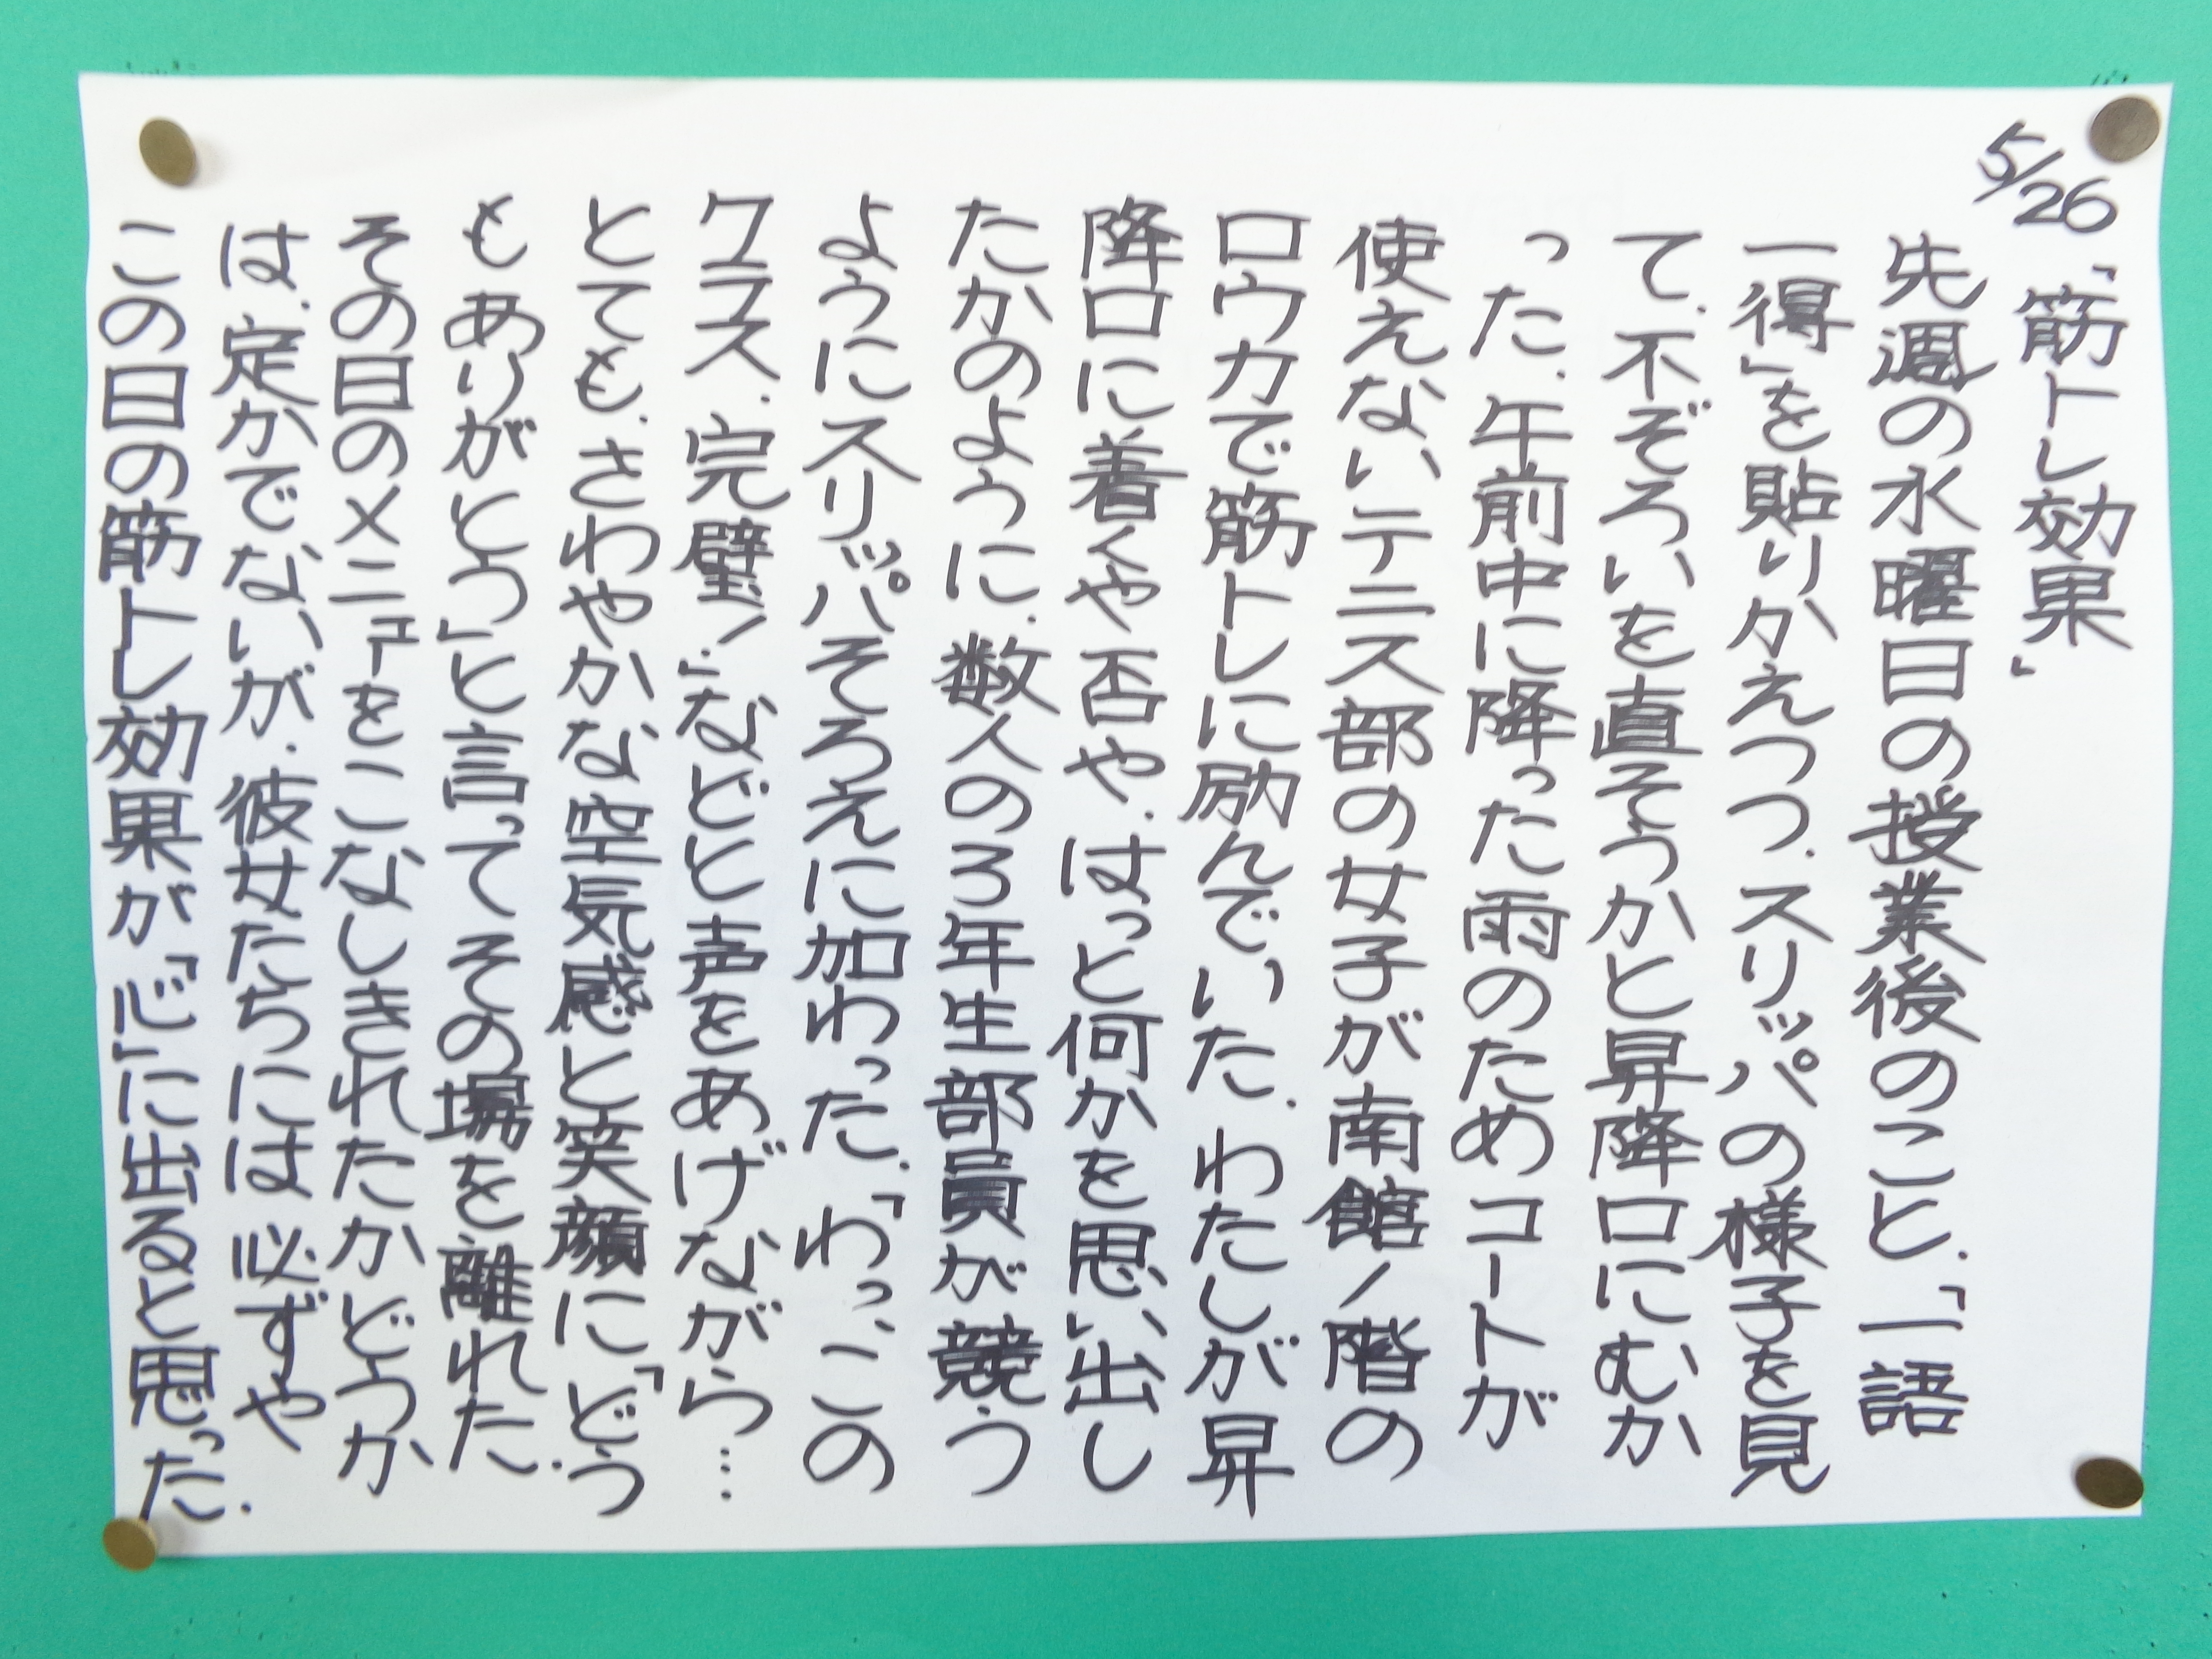 5/26
「筋トレ効果」
先週の水曜日の授業後のこと、「一語
一得」を貼りかえつつ、スリッパの様子を見
て、不ぞろいを直そうかと昇降口にむか
った、午前中に降った雨のためコートが
使えないテニス部の女子が南館1階の
ロウカで筋トレに励んでいた、わたしが昇
降口に着くや否や、はっと何かを思い出し
たかのように、数人の3年生部員が競う
ようにスリッパそろえに加わった、「わっ、この
クラス、完璧!」などと声をあげながら…
とても、さわやかな空気感と笑顔に「どう
もありがとう」と言ってその場を離れた、
その日のメニューをこなしきれたかどうか
は、定かでないが、彼女たちには必ずや
この日の筋トレ効果が「心」に出ると思った、